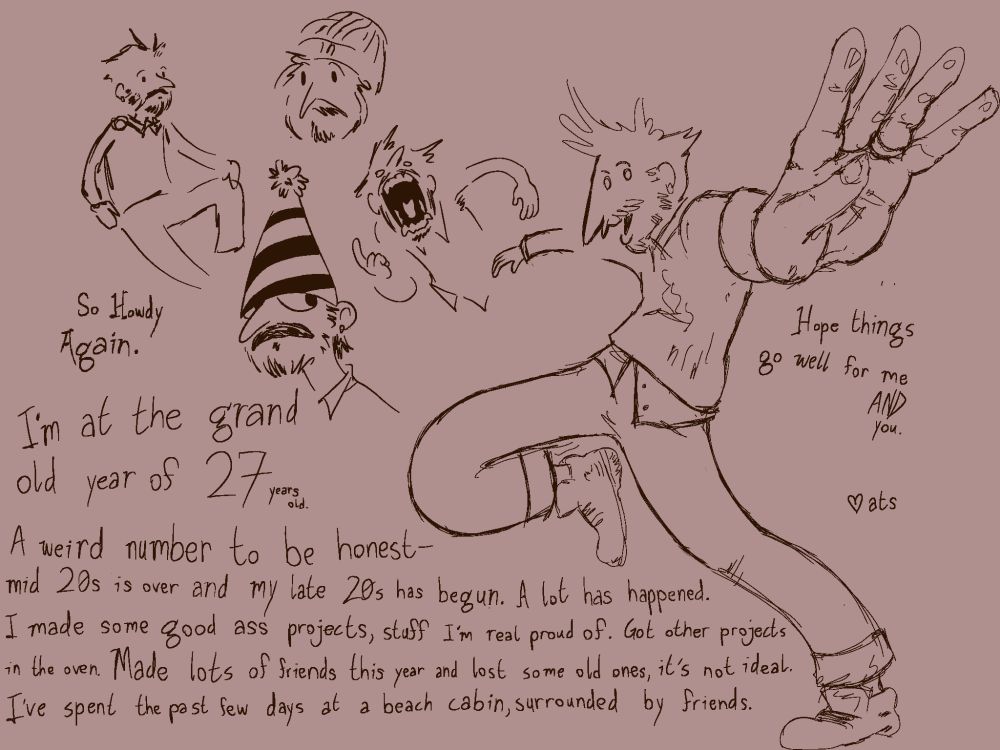 So Howdy
Again.
I'm at the grand
old year of 27 years
old.
A weird number to be honest—
mid 20s is over and my late 20s has begun. A lot has happened.
I made some good ass projects, stuff I'm real proud of. Got other projects
in the oven. Made lots of friends this year and lost some old ones, it's not ideal.
I've spent the past few days at a beach cabin, surrounded by friends.
Hope things
go well for me
AND
you.
♡ats